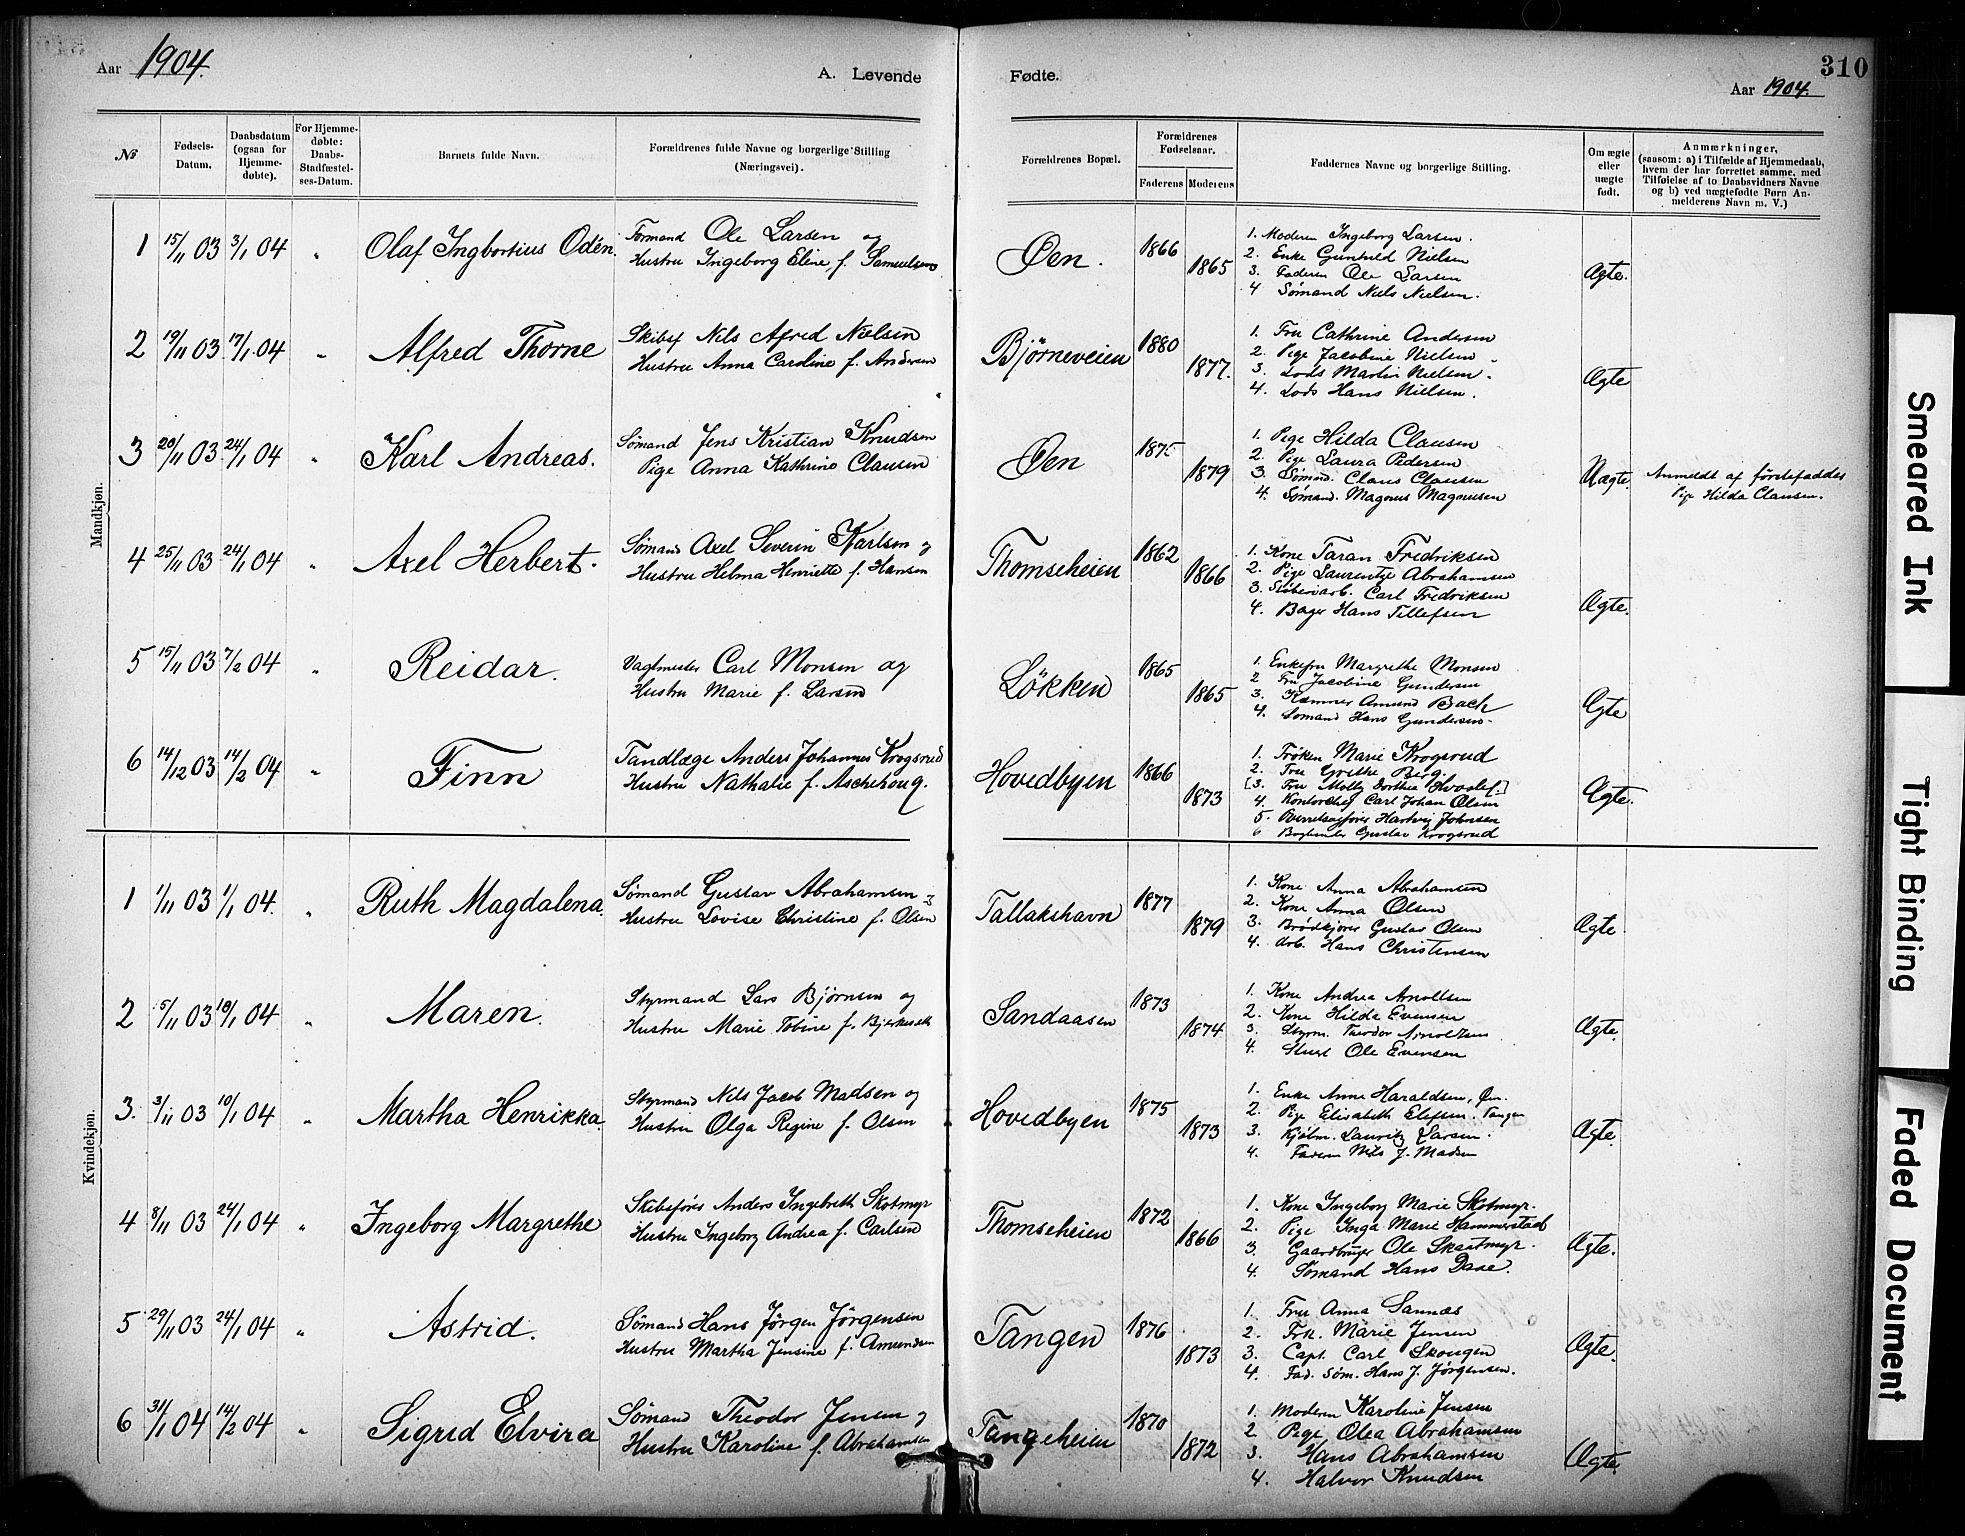 Aar 1904.
A. Levende
Fødte.
310
Aar 1904.
№
Fødsels-
Datum.
Daabsdatum
(ogsaa for
Hjemme-
døbte).
For Hjemme-
døbte:
Daabs-
Stadfæstel-
ses-Datum.
Barnets fulde Navn.
Forældrenes fulde Navne og borgerlige Stilling
(Næringsvei).
Forældrenes Bopæl.
Forældrenes
Fødselsaar.
Faderens
Moderens
Faddernes Navne og borgerlige Stilling.
Om ægte
eller
uægte
født.
Anmærkninger,
(saasom: a) i Tilfælde af Hjemmedaab,
hvem der har forrettet samme, med
Tilføielse af to Daabsvidners Navne
og b) ved uægtefødte Børn An-
melderens Navn m. V.)
Mandkjøn.
1 15/11 03 3/1 04 " Olaf Ingbortius Odén.
Formand Ole Larsen og
Hustru Ingeborg Eline f. Samuelsen
Øen. 1866 1865
1. Moderen Ingeborg Larsen.
2. Enke Gunhild Nielsen
3. Faderen Ole Larsen
4 Sømand Niels Nielsen.
Ægte.
2 19/11 03 17/1 04 " Alfred Thorne
Skibsf Nils Afred Nielsen
Hustru Anna Caroline f. Andersen
Bjørneveien 1880 1877.
1. Fru Cathrine Andersen
2. Pige Jacobine Nielsen
3. Lods Martin Nielsen.
4. Lods Hans Nielsen.
Ægte
3 20/11 03 24/1 04 " Karl Andreas.
Sømand Jens Kristian Knudsen
Pige Anna Kathrine Clausen
Øen 1875 1879
1. Pige Hilda Clausen
2. Pige Laura Pedersen
3. Sømand. Claus Clausen
4. Sømand. Magnus Magnusen
Uægte.
Anmeldt af førstefadder
Pige Hilda Clausen.
4 25/11 03 24/1 04 " Axel Herbert.
Sømand Axel Severin Karlsen og
Hustru Helma Henriette f. Hansen
Thomseheien 1862 1866
1. Kone Taran Fredriksen
2. Pige Laurentze Abrahamsen
3. Støberiarb. Carl Fredriksen
4. Bager Hans Tellefsen
Ægte.
5 15/11 03 7/2 04 " Reidar.
Vagtmester Carl Monsen og
Hustru Marie f. Larsen
Løkken 1865 1865
1. Enkefru Margrethe Monsen
2 Fru Jacobine Gundersen
3. Kæmner Amund Bach
4. Sømand Hans Gundersen.
Ægte
6 14/12 03 14/2 04 " Finn
Tandlæge Anders Johannes Krogsrud
Hustru Nathalie f. Aschehoug.
Hovedbyen 1866 1873
1. Frøken Marie Krogsrud
2. Fru Grethe Berg.
[3. Fru Molly Dorthea Hvoslef.]
4. Kontorchef Carl Johan Olsen
5. Overretssagfører Hartvig Johnsen
6 Bogbinder Gustav Krogsrud
Ægte.
Kvindekjøn.
1 1/11 03 1/1 04. " Ruth Magdalena.
Sømand Gustav Abrahamsen og
Hustru Lovise Christine f. Olsen
Tallakshavn 1877 1879
1. Kone Anna Abrahamsen
2. Kone Anna Olsen
3. Brødkjører Gustav Olsen
4. Arb. Hans Christensen
Ægte
2 5/11 03 18/1 04 " Maren.
Styrmand Lars Bjørnsen og
Hustru Marie Tobine f.
Sandaasen 1873 1874
1. Kone Andrea Arnoltsen
2. Kone Hilda Evensen
3. Styrm. Theodor Arnoltzen
4. Ole Evensen
Ægte.
3. 3/11 03 10/1 04 " Martha Henrikka.
Styrmand Nils Jacob Madsen og
Hustru Olga Regine f. Olsen
Hovedbyen 1875 1873
1. Enke Anne Haraldsen, Øen.
2. Pige Elisabeth Elefsen. Tangen
3. Kjøbm. Lauritz Larsen.
4. Faderen Nils J. Madsen
Ægte.
4 8/11 03 24/1 04 " Ingeborg Margrethe
Skibsfører Anders Ingebreth Skotmyr
Hustru Ingeborg Andrea f. Carlsen
Thomseheien 1872 1866
1. Kone Ingeborg Marie Skotmyr.
2. Pige Inga Marie Hammerstad
3. Gaardbruger Ole Skaatmyr.
4. Sømand Hans Dave.
Ægte.
5 29/11 03 24/1 04 " Astrid.
Sømand Hans Jørgen Jørgensen
Hustru Martha Jensine f. Amundsen
Tangen 1876 1873
1. Fru Anna Sannæs
2. Frk. Marie Jensen
3. Capt. Carl Skougen
4. Fad. Søm. Hans J. Jørgensen.
Ægte.
6 31/1 04 14/2 04 " Sigrid Elvira
Sømand Theodor Jensen og
Hustru Karoline f. Abrahamsen
Tangeheien 1870 1872
1. Moderen Karoline Jensen
2 Pige Olea Abrahamsen
3. Hans Abrahamsen
4. Halvor Knudsen
Ægte.
Smeared Ink
Tight Binding
Faded Document